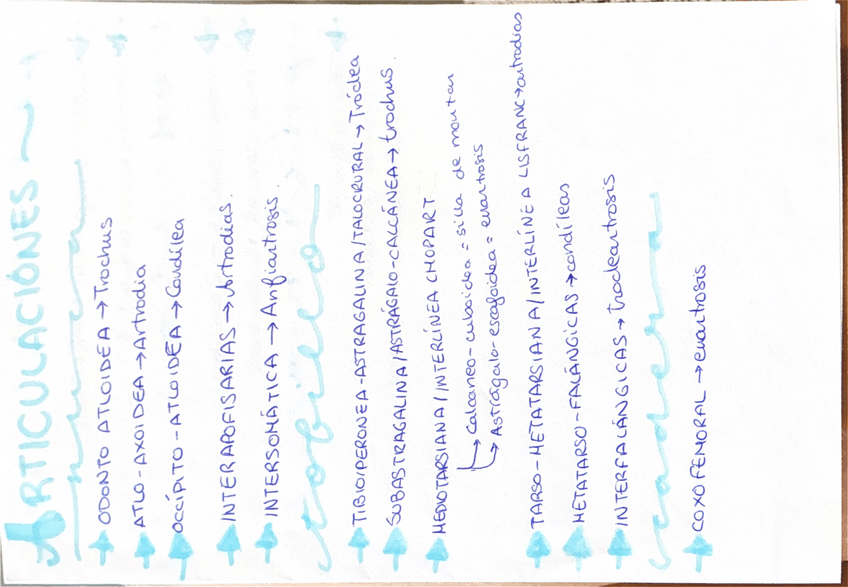 ARTICULACIÓNES
nuca
ODONTO ATLOIDEA → Trochus
ATLO-AXOIDEA → Artrodia
OCCÍPITO-ATLOIDEA → Condílea
INTERAPOFISARIAS → Artrodias.
INTERSOMÁTICA → Anfiartrosis.
tobillo
TIBIO/PERONEA-ASTRAGALINA/TALOCRURAL → Tróclea
SUBASTRAGALINA/ASTRÁGALO-CALCÁNEA → trochus.
MEDIOTARSIANA/INTERLÍNEA CHOPART
→ Calcaneo-cuboidea = silla de montar
→ Astrágalo-escafoidea = enartrosis
TARSO-METATARSIANA/INTERLÍNEA LISFRANC → artrodias
METATARSO-FALÁNGICAS → condíleas
INTERFALÁNGICAS → trocleartrosis
cadera
COXOFEMORAL → enartrosis